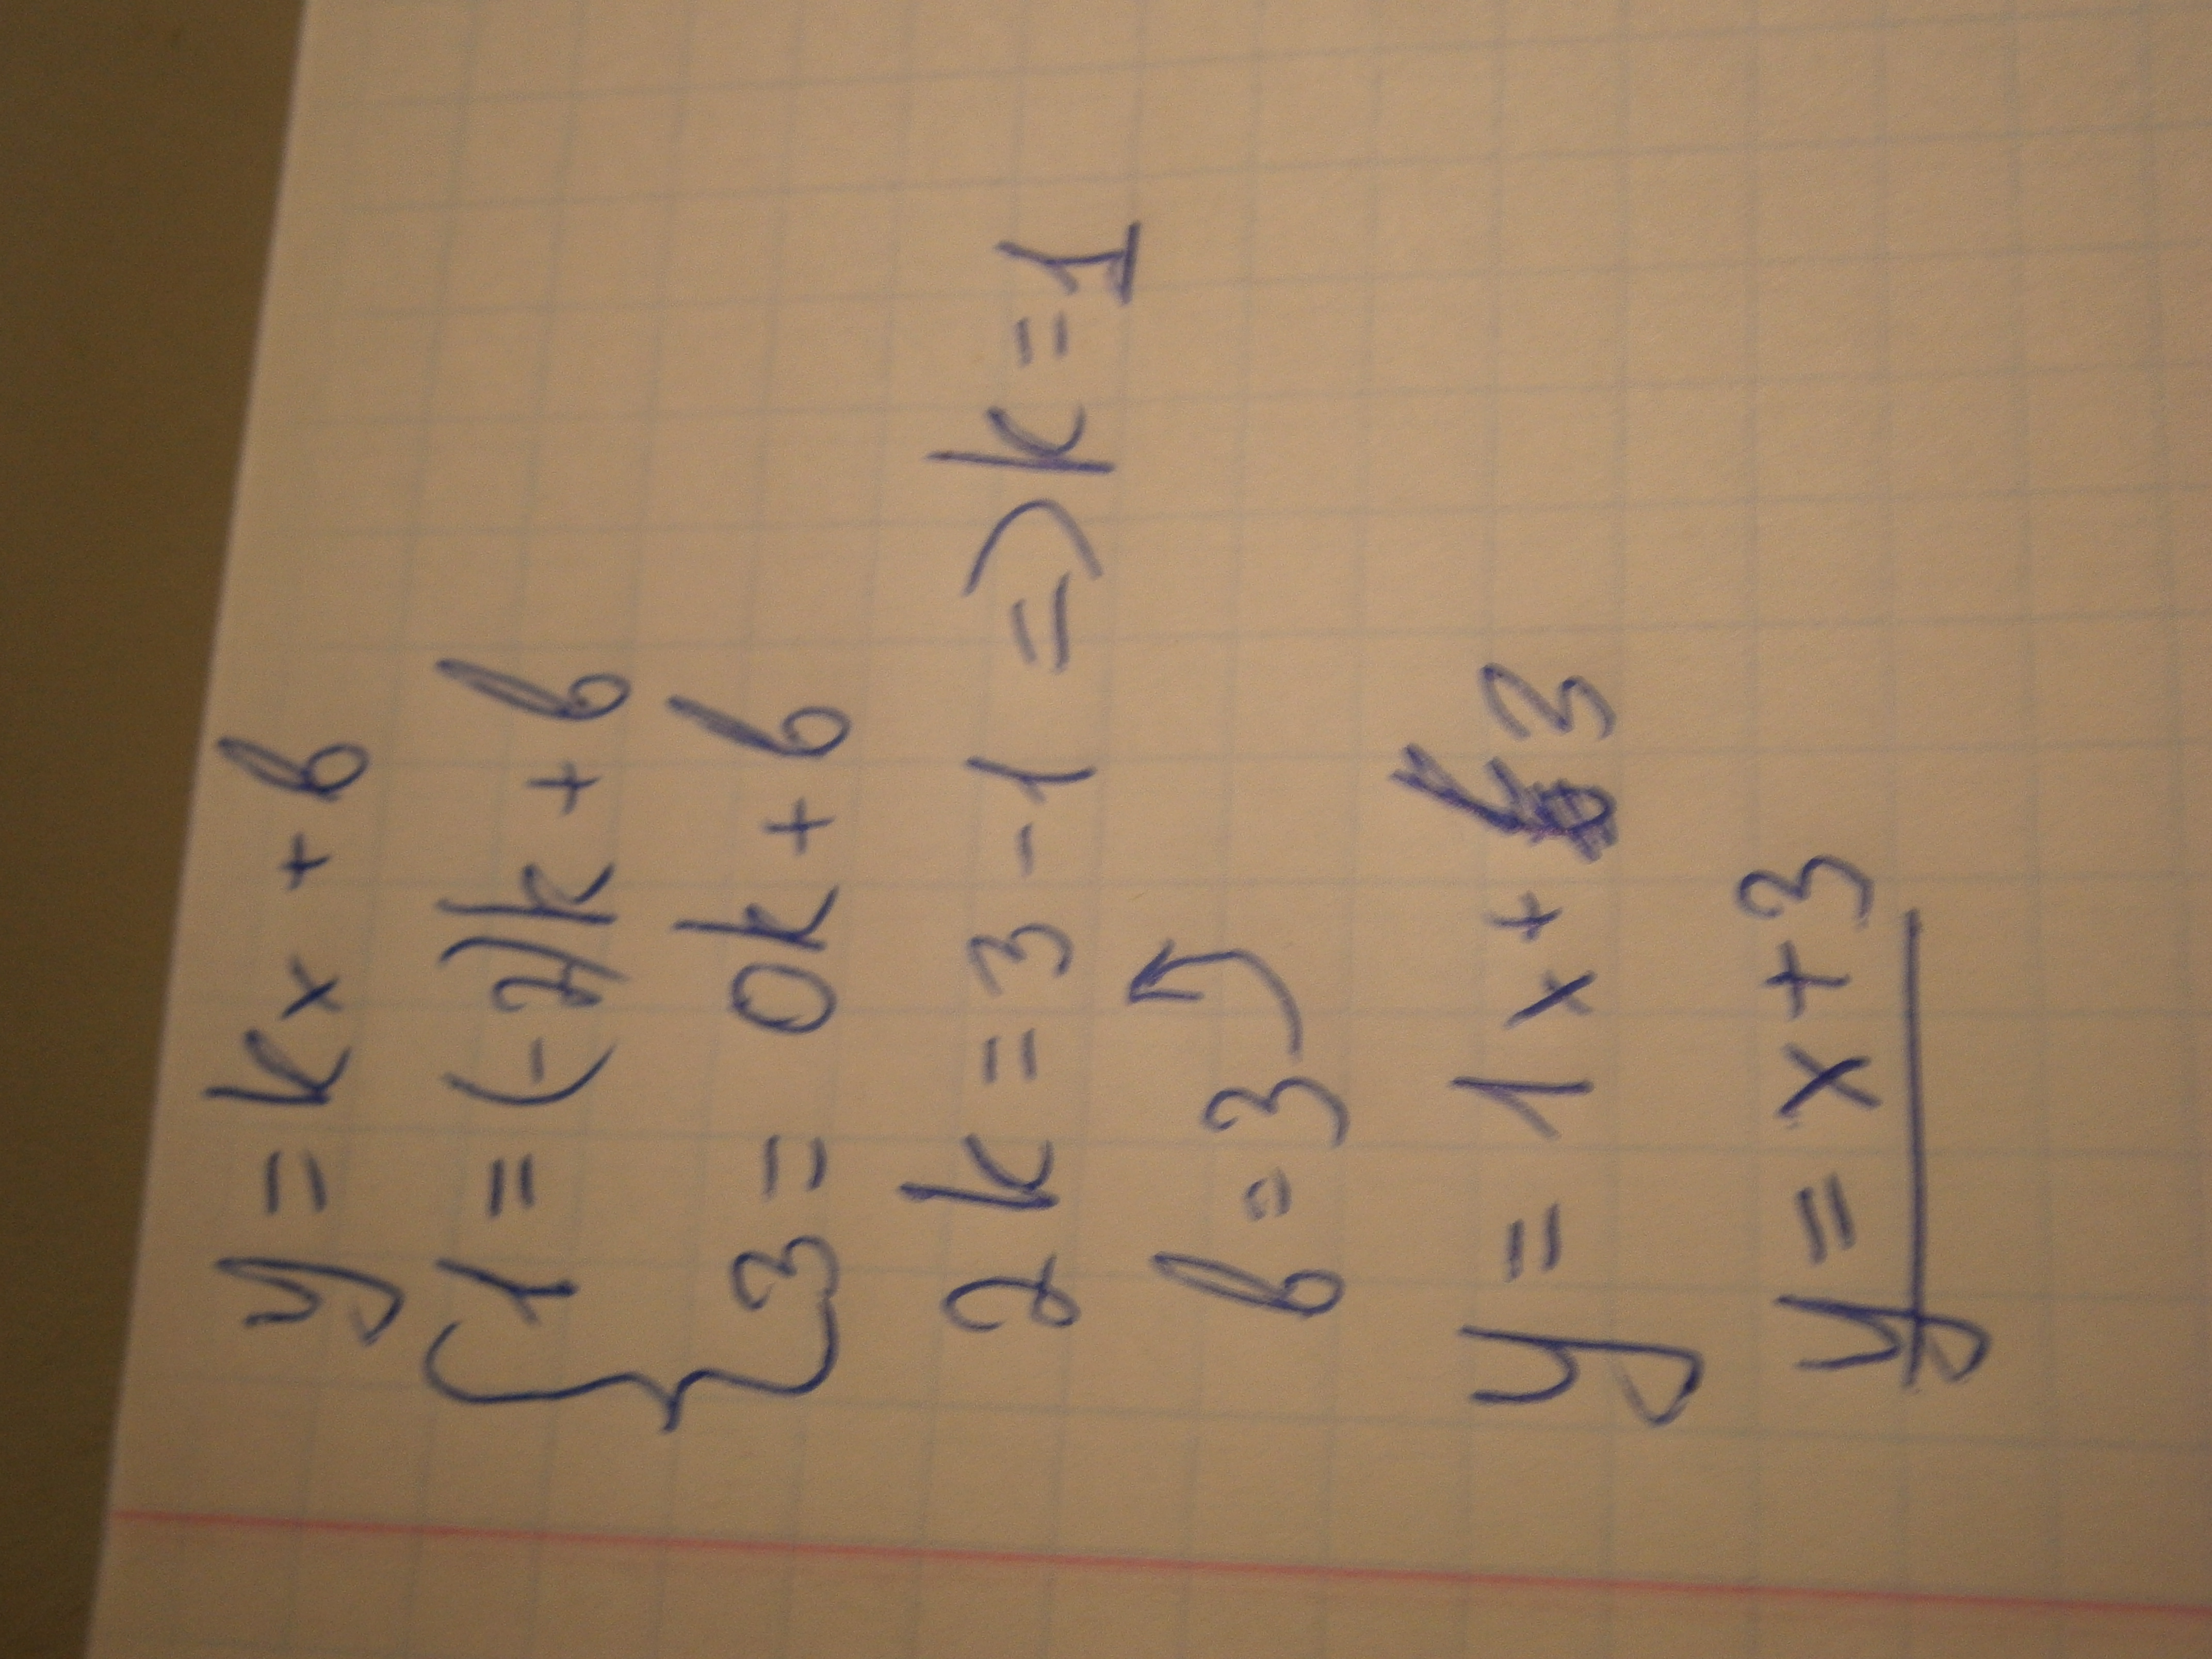 y = kx + b
{ 1 = (-2)k + b
3 = 0k + b
2k = 3 - 1 => k = 1
b = 3
y = 1x + 3
y = x + 3